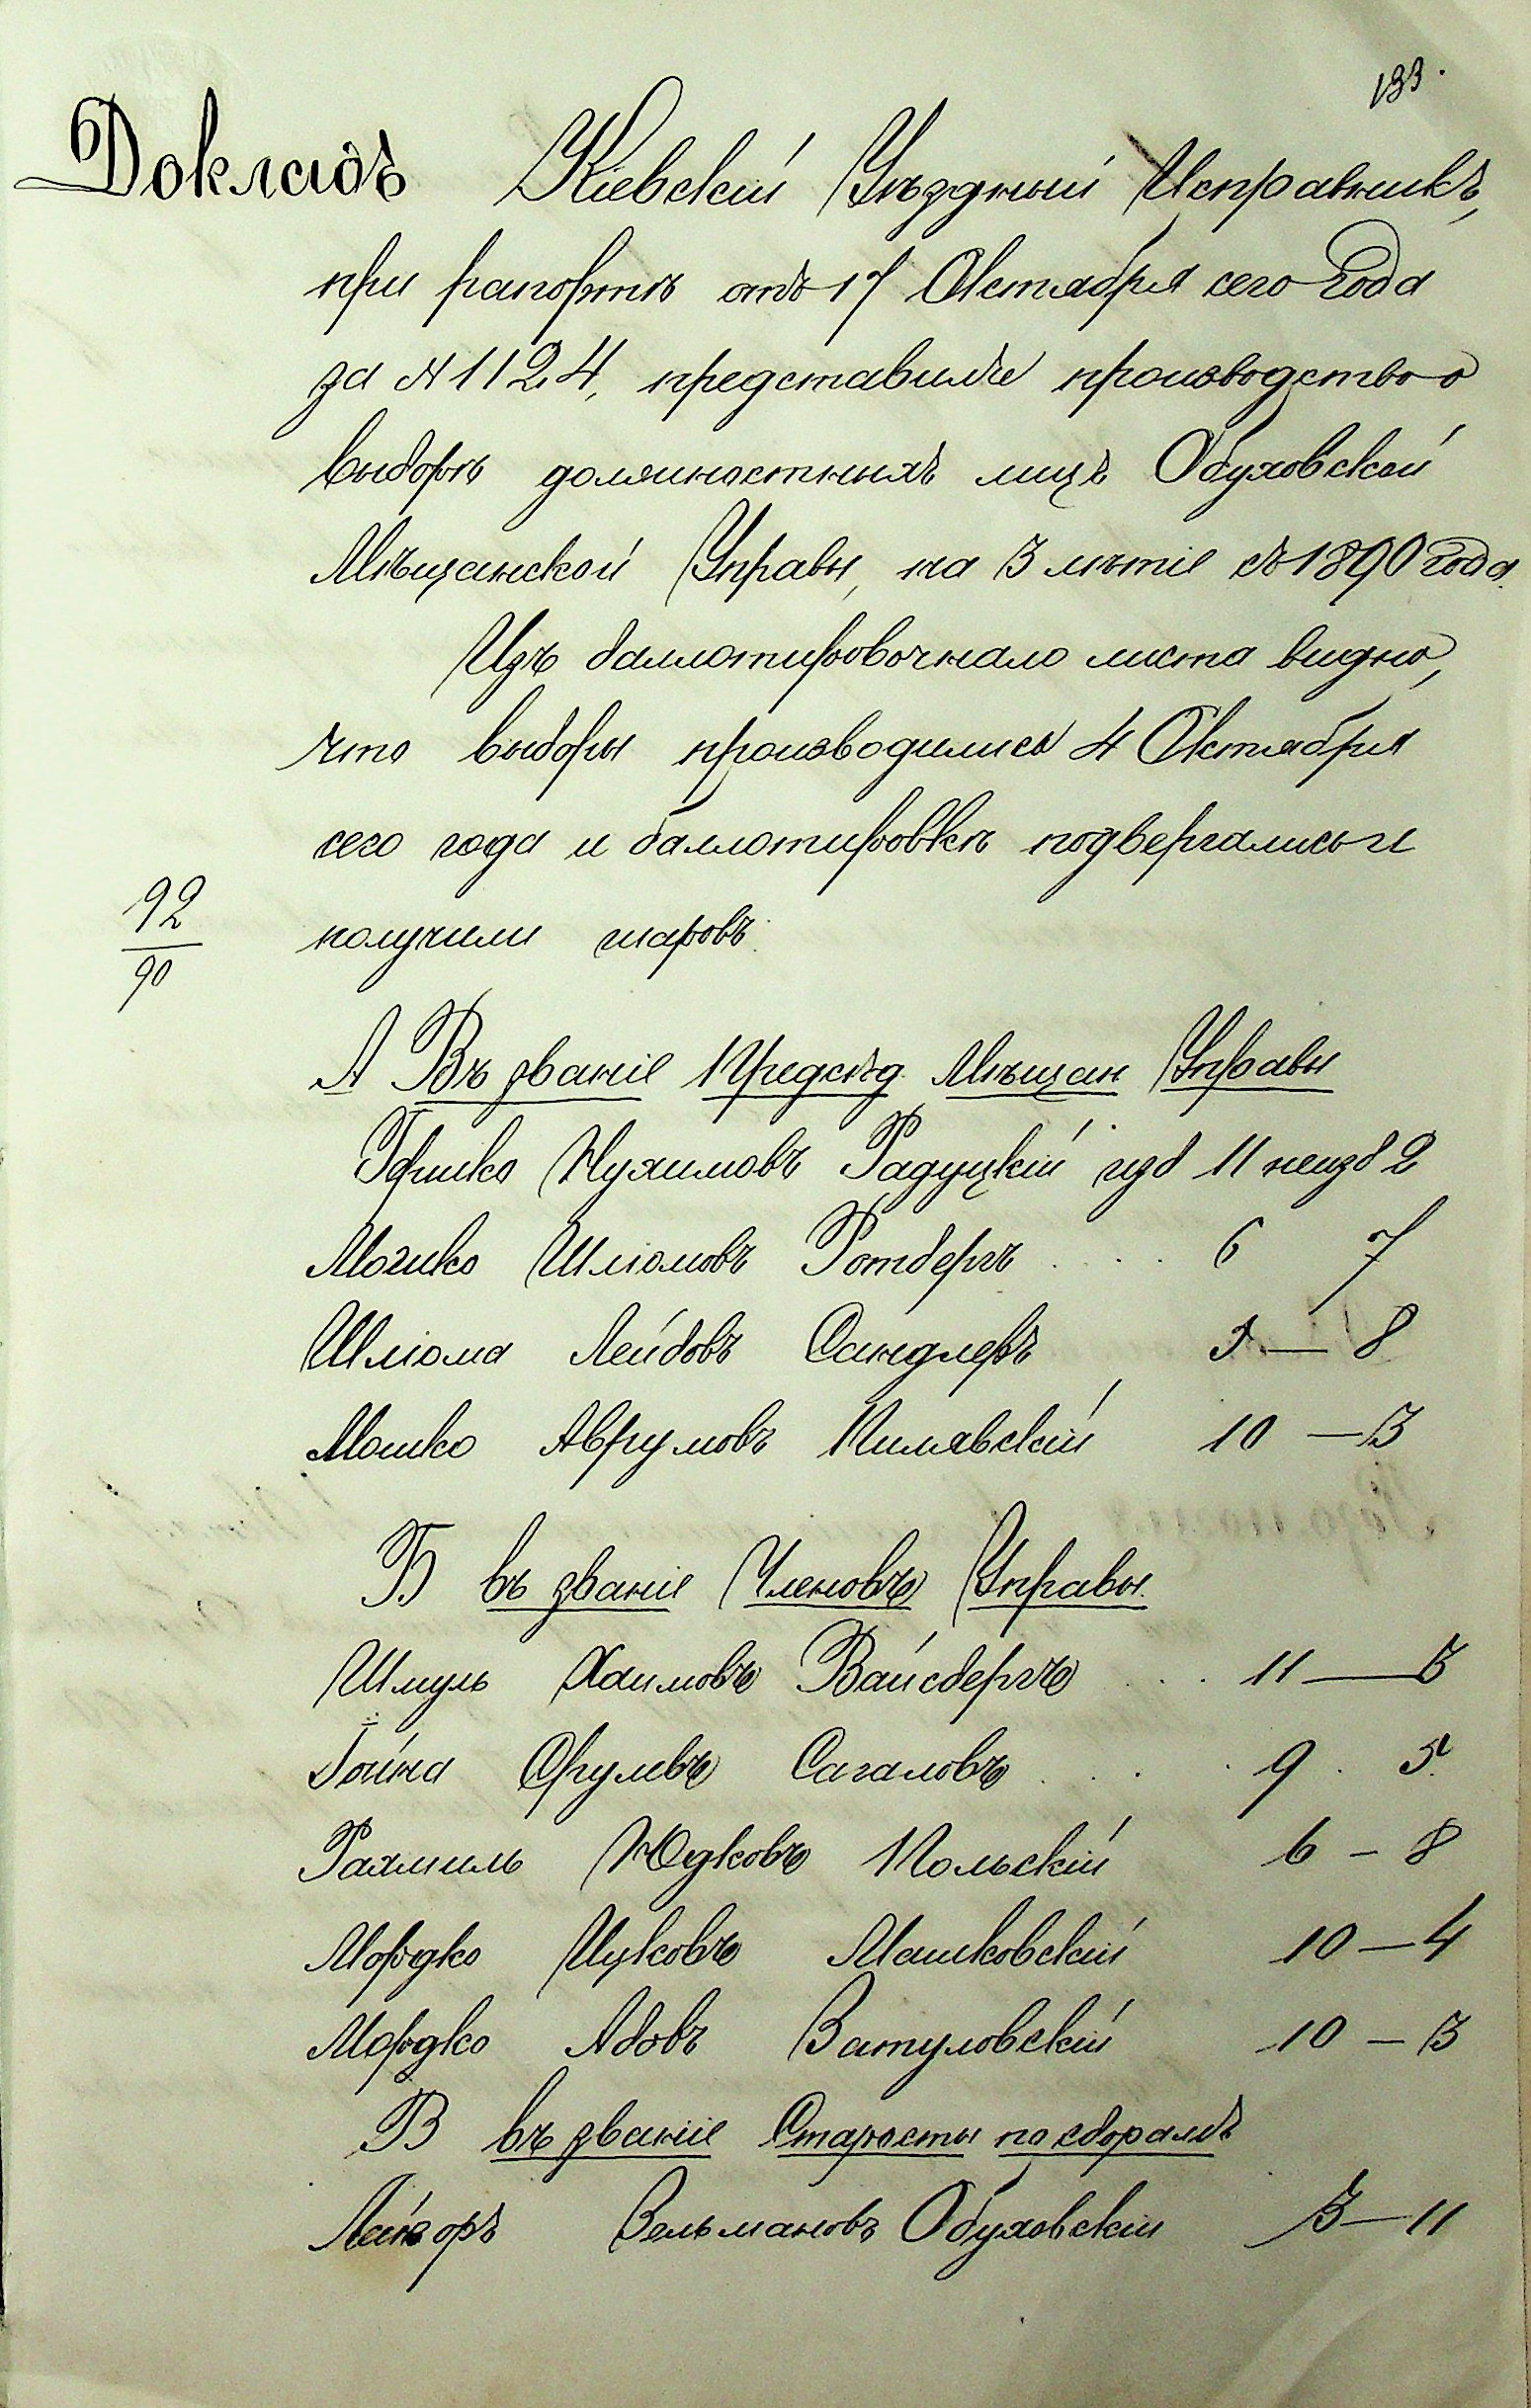 133.
Докладъ Кіевскій Уѣздный Исправникъ,
при рапортѣ отъ 17 Октября сего года
за № 1124, представилъ производство о
выборѣ должностныхъ лицъ Обуховской
Мѣщанской Управы, на 3 лѣтіе съ 1890 года.
Изъ баллотировочнаго листа видно,
что выборы производились 4 Октября
сего года и баллотировкѣ подвергались и
92/90 получили шаровъ.
А Въ званіе Предсѣд. Мѣщан Управы
Гершко Нухимовъ Радуцкій изб 11 неизб 2
Мошко Шліомовъ Ротбергъ . . . . 6 7
Шліома Лейбовъ Сандлеръ 5 — 8
Мошко Аврумовъ Пилявскій 10 — 3
Б въ званіе Членовъ Управы.
Шмуль Хаимовъ Вайсбергъ . . . 11 — 3
Іойна Срулевъ Сагаловъ . . . 9 . 5.
Рахмиль Юдковъ Польскій 6 — 8
Мордко Ицковъ Машковскій 10 — 4
Мордко Абовъ Ватуловскій 10 — 3
В въ званіе Старосты по сборамъ
Лейзоръ Зельмановъ Обуховскій 3 — 11